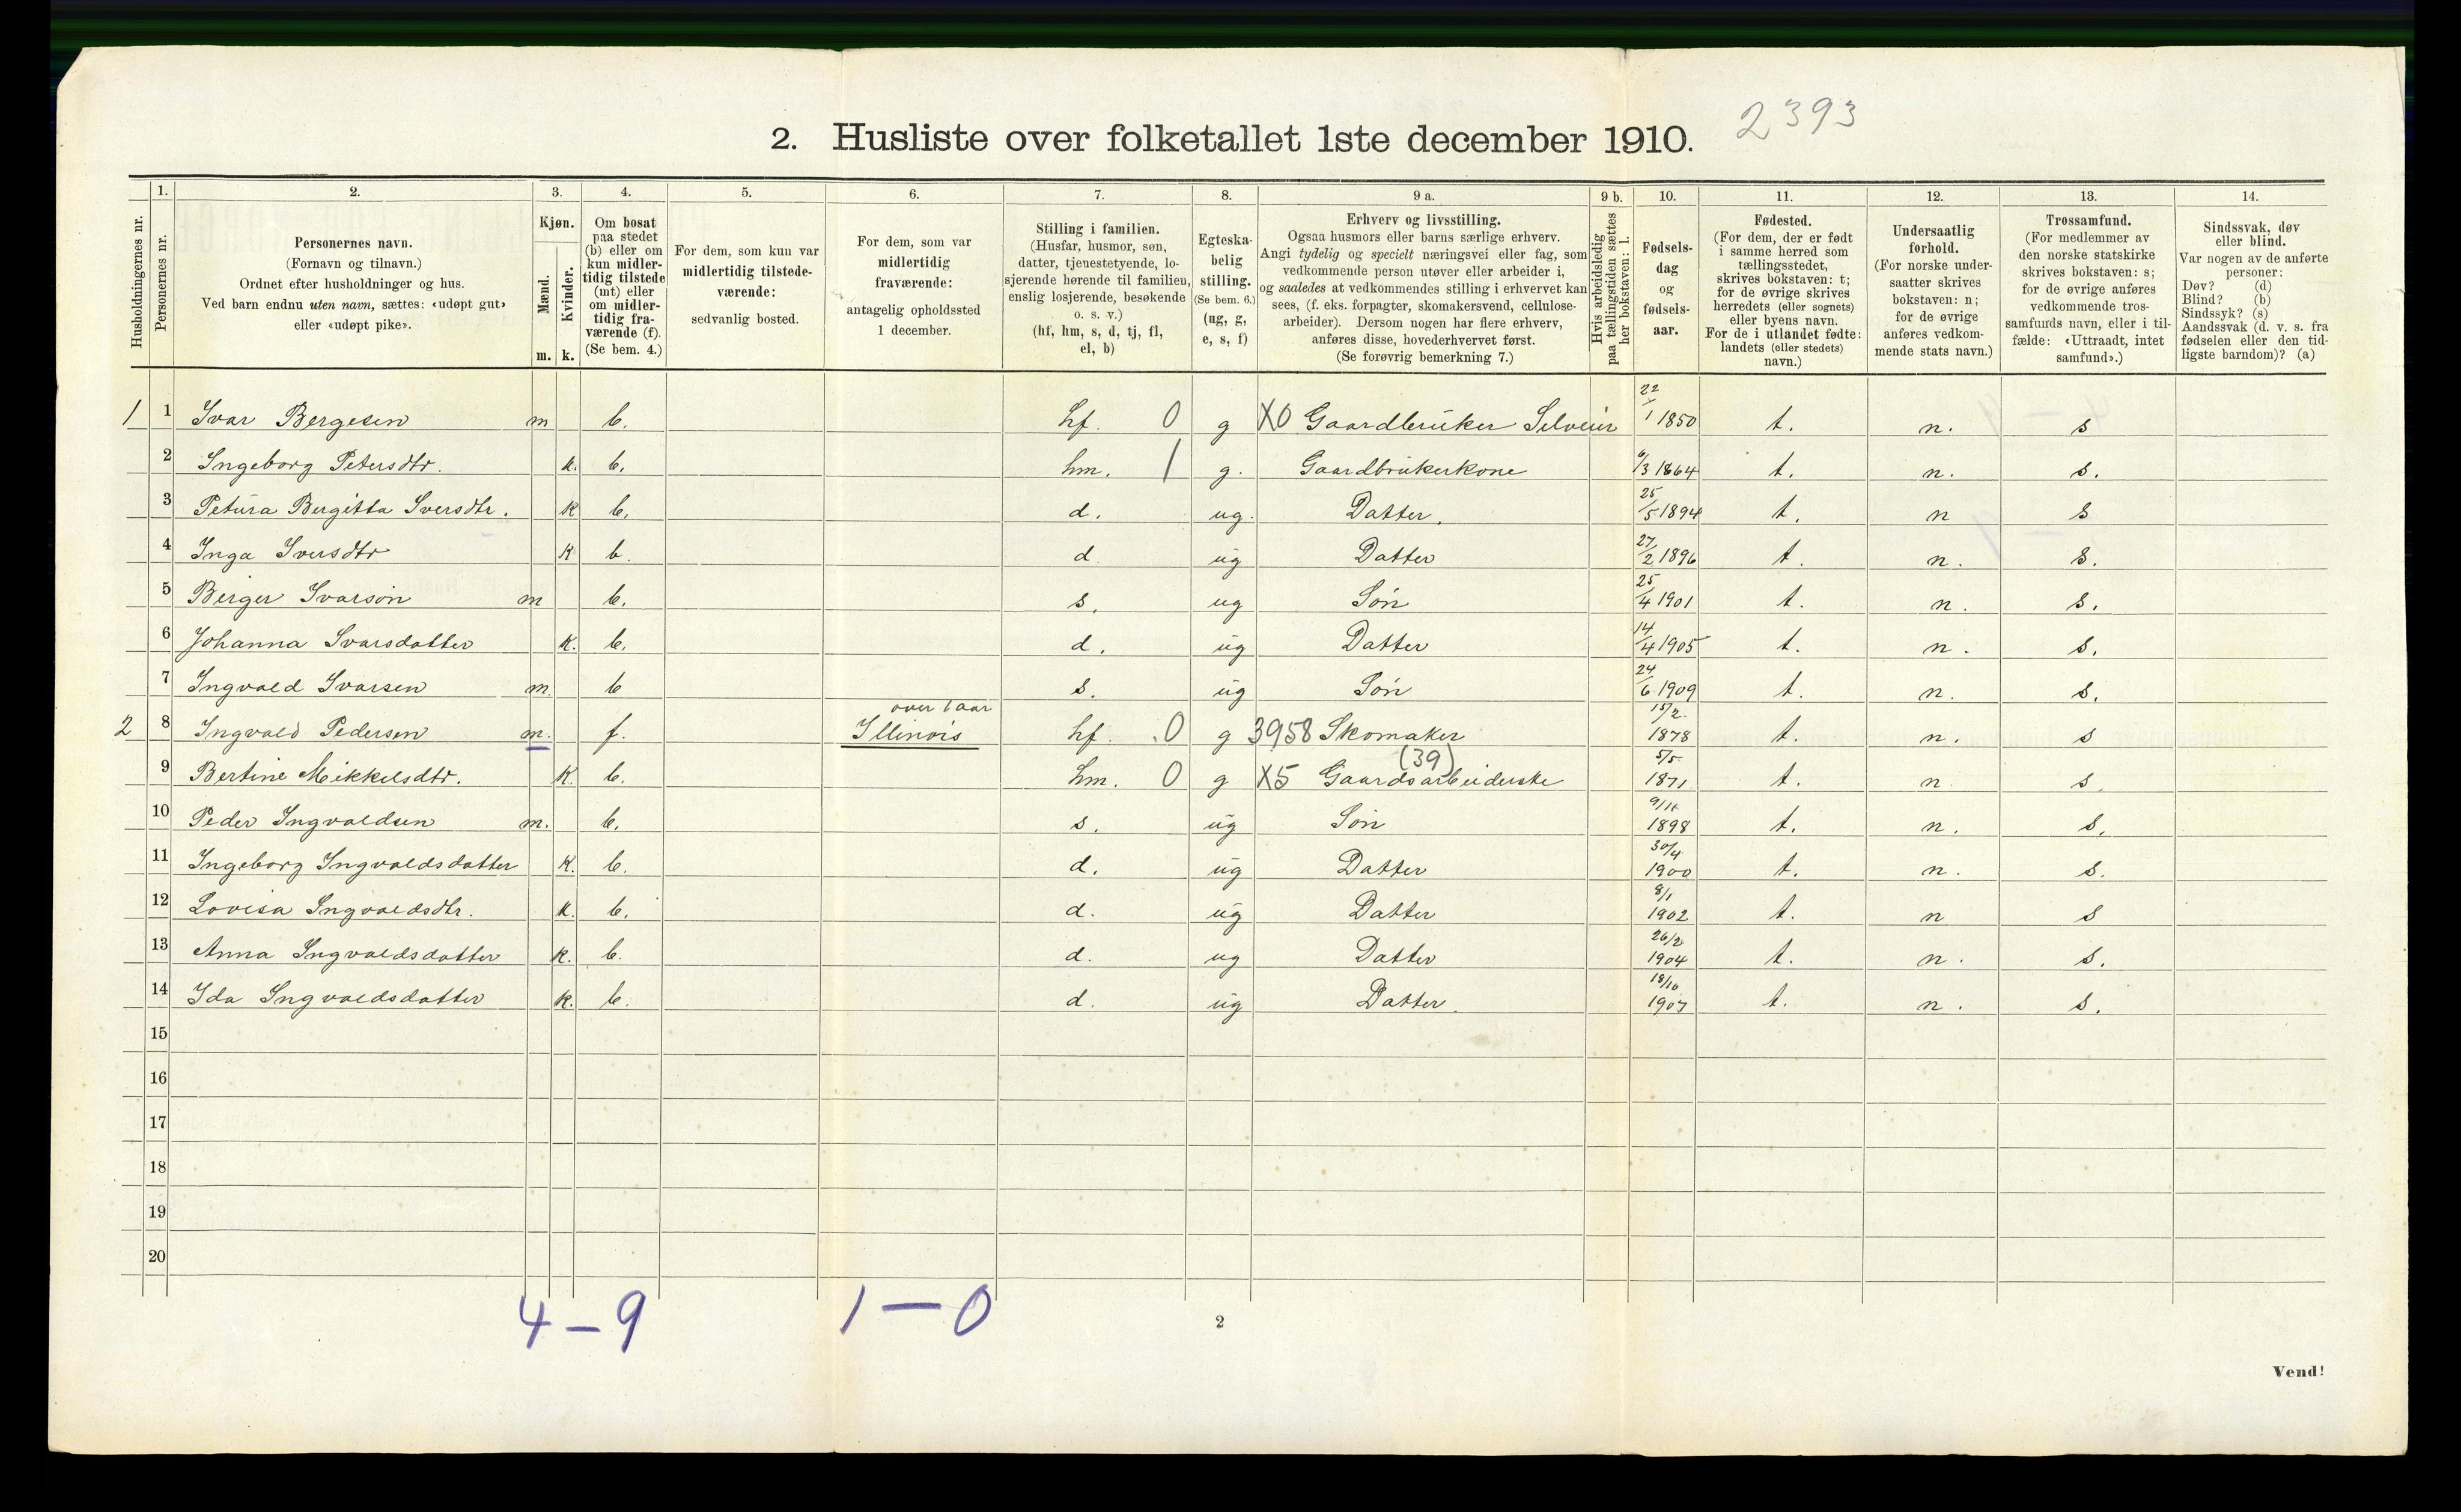 2393
2. Husliste over folketallet 1ste december 1910.
Husholdningernes nr.
1. Personernes nr.
2. Personernes navn. (Fornavn og tilnavn.) Ordnet efter husholdninger og hus. Ved barn endnu uten navn, sættes: «udøpt gut» eller «udøpt pike».
3. Kjøn. Mænd. m. Kvinder. k.
4. Om bosat paa stedet (b) eller om kun midlertidig tilstede (mt) eller om midlertidig fraværende (f). (Se bem. 4.)
5. For dem, som kun var midlertidig tilstedeværende: sedvanlig bosted.
6. For dem, som var midlertidig fraværende: antagelig opholdssted 1 december.
7. Stilling i familien. (Husfar, husmor, søn, datter, tjenestetyende, losjerende hørende til familien, enslig losjerende, besøkende o. s. v.) (hf, hm, s, d, tj, fl, el, b)
8. Egteskabelig stilling. (Se bem. 6.) (ug, g, e, s, f)
9 a. Erhverv og livsstilling. Ogsaa husmors eller barns særlige erhverv. Angi tydelig og specielt næringsvei eller fag, som vedkommende person utøver eller arbeider i, og saaledes at vedkommendes stilling i erhvervet kan sees, (f. eks. forpagter, skomakersvend, cellulosearbeider). Dersom nogen har flere erhverv, anføres disse, hovederhvervet først. (Se forøvrig bemerkning 7.)
9 b. Hvis arbeidsledig paa tællingstiden sættes her bokstaven: l.
10. Fødselsdag og fødselsaar.
11. Fødested. (For dem, der er født i samme herred som tællingsstedet, skrives bokstaven: t; for de øvrige skrives herredets (eller sognets) eller byens navn. For de i utlandet fødte: landets (eller stedets) navn.)
12. Undersaatlig forhold. (For norske undersaatter skrives bokstaven: n; for de øvrige anføres vedkommende stats navn.)
13. Trossamfund. (For medlemmer av den norske statskirke skrives bokstaven: s; for de øvrige anføres vedkommende trossamfunds navn, eller i tilfælde: «Uttraadt, intet samfund».)
14. Sindssvak, døv eller blind. Var nogen av de anførte personer: Døv? (d) Blind? (b) Sindssyk? (s) Aandssvak (d. v. s. fra fødselen eller den tidligste barndom)? (a)
1 1 Ivar Bergesen m b. hf. 0 g X0 Gaardbruker Selveier 22/1 1850 t. n. s
2 Ingeborg Petersdtr. k. b. hm. 1 g. Gaardbrukerkone 6/3 1864 t. n. s.
3 Petura Bergitta Iversdtr. k b. d. ug. Datter. 25/5 1894 t. n s
4 Inga Iversdtr k b. d ug Datter 27/2 1896 t. n. s.
5 Berger Ivarson m b. s. ug Søn 25/4 1901 t. n. s.
6 Johanna Ivarsdatter k. b. d. ug Datter 14/4 1905 t. n. s.
7 Ingvald Ivarsen m. b s. ug Søn 24/6 1909 t. n. s.
2 8 Ingvald Pedersen m. f. over 1 aar Illinois hf. 0 g 3958 Skomaker 15/2 1878 t. n. s
9 Bertine Mikkelsdtr. k. b. hm. 0 g X5 Gaardsarbeiderske (39) 5/5 1871 t. n s.
10 Peder Ingvaldsen m. b. s. ug Søn 9/11 1898 t. n. s.
11 Ingeborg Ingvaldsdatter k. b. d. ug Datter 30/4 1900 t. n. s.
12 Lovisa Ingvaldsdtr. k. b. d. ug Datter 8/1 1902 t. n s
13 Anna Ingvaldsdatter k. b. d. ug Datter 26/2 1904 t. n. s.
14 Ida Ingvaldsdatter k. b. d. ug Datter. 18/10 1907 t. n. s.
15
16
17
18
19
20
4 — 9 1 — 0
2
Vend!